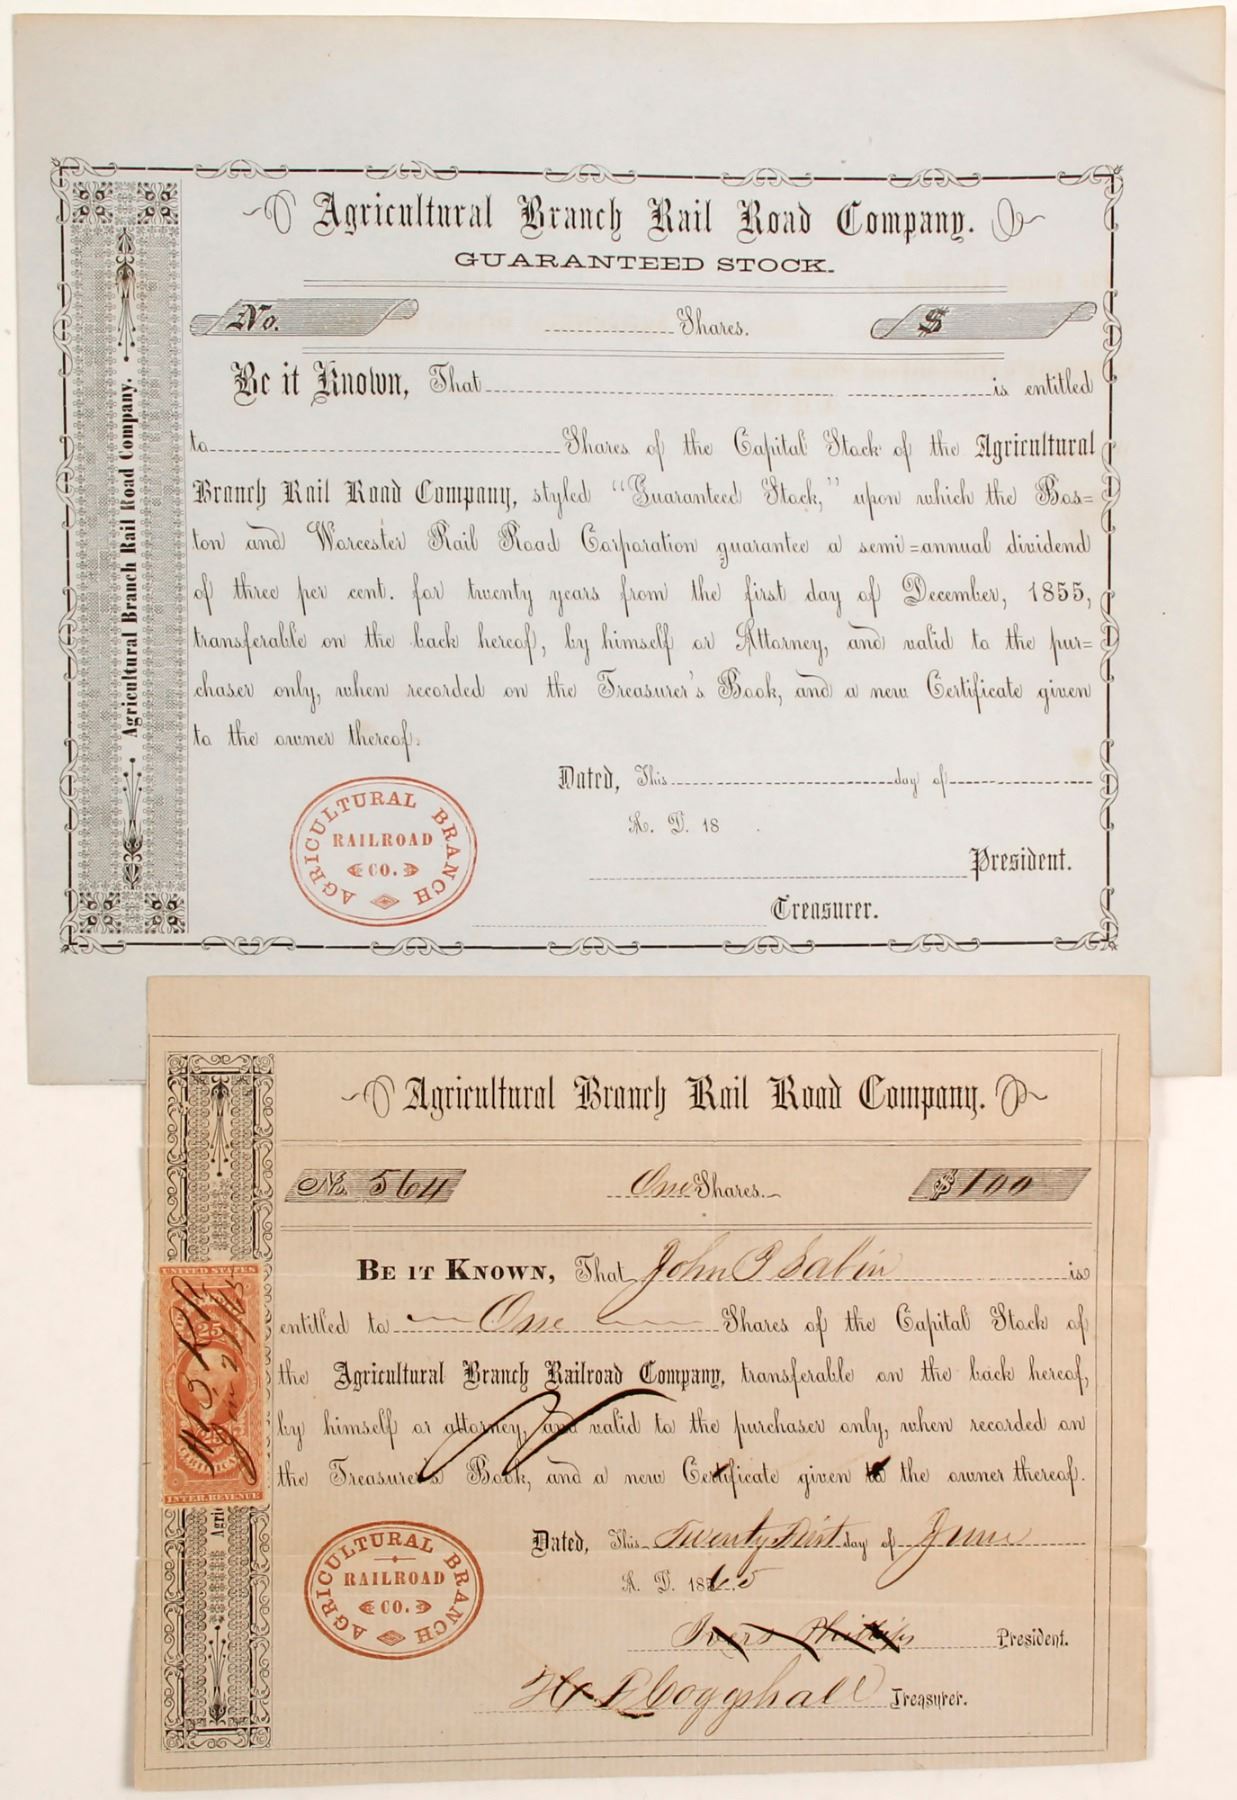 Agricultural Branch Rail Road Company.
GUARANTEED STOCK.
No. Shares. $
Be it Known, That is entitled
to Shares of the Capital Stock of the Agricultural
Branch Rail Road Company, styled “Guaranteed Stock,” upon which the Bos=
ton and Worcester Rail Road Corporation guarantee a semi=annual dividend
of three per cent. for twenty years from the first day of December, 1855,
transferable on the back hereof, by himself or Attorney, and valid to the pur=
chaser only, when recorded on the Treasurer's Book, and a new Certificate given
to the owner thereof.
Dated, This day of
A. D. 18
President.
Treasurer.
AGRICULTURAL BRANCH
RAILROAD
CO.
Agricultural Branch Rail Road Company.
Agricultural Branch Rail Road Company.
No. 564 One Shares. $100
BE IT KNOWN, That John Sabin is
entitled to One Shares of the Capital Stock of
the Agricultural Branch Railroad Company, transferable on the back hereof,
by himself or attorney, and valid to the purchaser only, when recorded on
the Treasurer's Book, and a new Certificate given to the owner thereof.
Dated, This Twenty First day of June
A. D. 1865
Ivers Phillips President.
Coggshall Treasurer.
AGRICULTURAL BRANCH
RAILROAD
CO.
UNITED STATES
25
CERTIFICATE
INTER. REVENUE
Agri